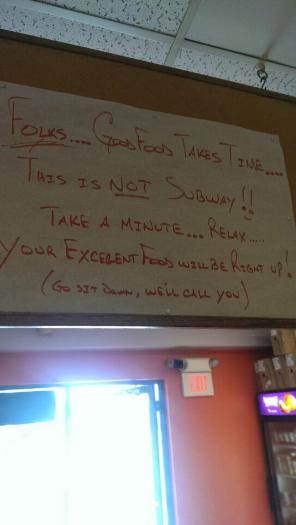 FOLKS.... GOOD FOOD TAKES TINE....
THIS IS NOT SUBWAY!!
TAKE A MINUTE... RELAX.....
YOUR EXCELENT FOOD WILL BE RIGHT UP!
(GO SIT DOWN, WE'LL CALL YOU)
EXIT